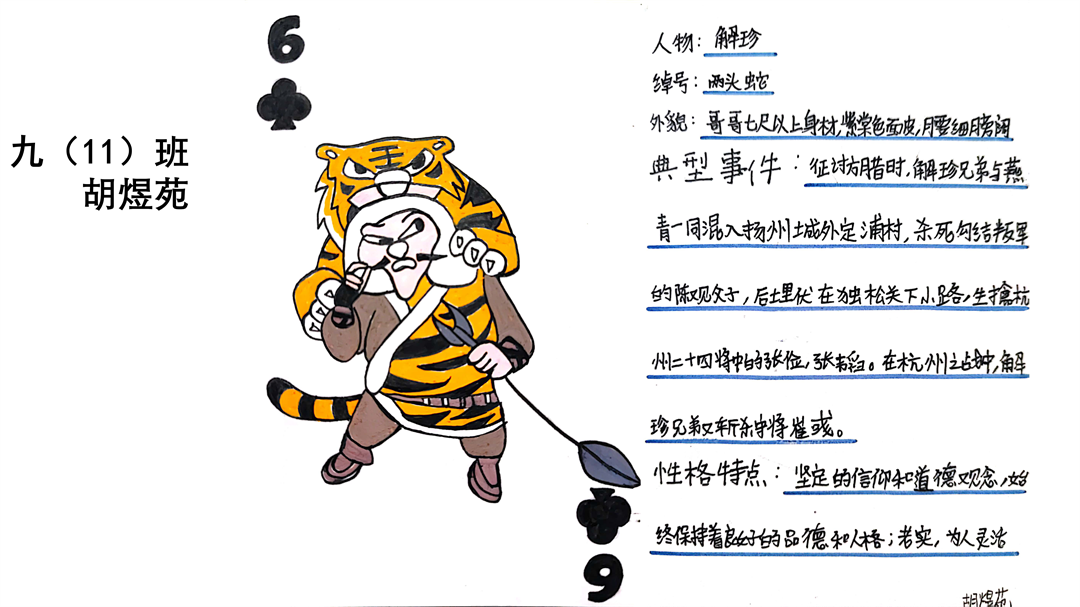 九（11）班
胡煜苑
6
王
人物：解珍
绰号：两头蛇
外貌：哥哥七尺以上身材，紫棠色面皮，腰细膀阔
典型事件：征讨方腊时，解珍兄弟与燕
青一同混入扬州城外定浦村，杀死勾结叛军
的陈观父子，后埋伏在独松关下小路，生擒杭
州二十四将中的张俭，张韬。在杭州之战中，解
珍兄弟又斩杀守将崔彧。
性格特点：坚定的信仰和道德观念，始
终保持着良好的品德和人格；老实，为人灵活
6
胡煜苑